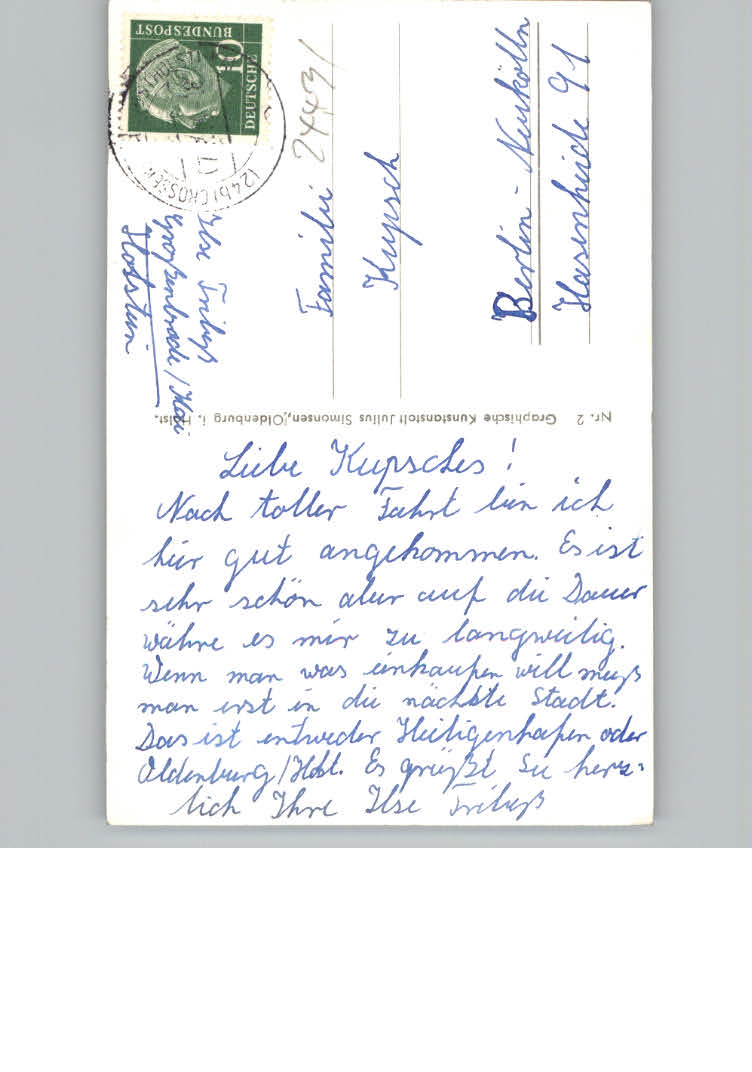 DEUTSCHE
BUNDESPOST
10
(24b) GROSSEN
24431
Ilse Fribuß
Großenbrode / Kai
Holstein
Familie
Kupsch
Berlin - Neukölln
Hasenheide 91
Nr. 2 Graphische Kunstanstalt Julius Simonsen, Oldenburg i. Holst.
Liebe Kupsches!
Nach toller Fahrt bin ich
hier gut angekommen. Es ist
sehr schön aber auf die Dauer
währe es mir zu langweilig.
Wenn man was einkaufen will muß
man erst in die nächste Stadt.
Das ist entweder Heiligenhafen oder
Oldenburg/Holst. Es grüßt Sie herz-
lich Ihre Ilse Fribuß